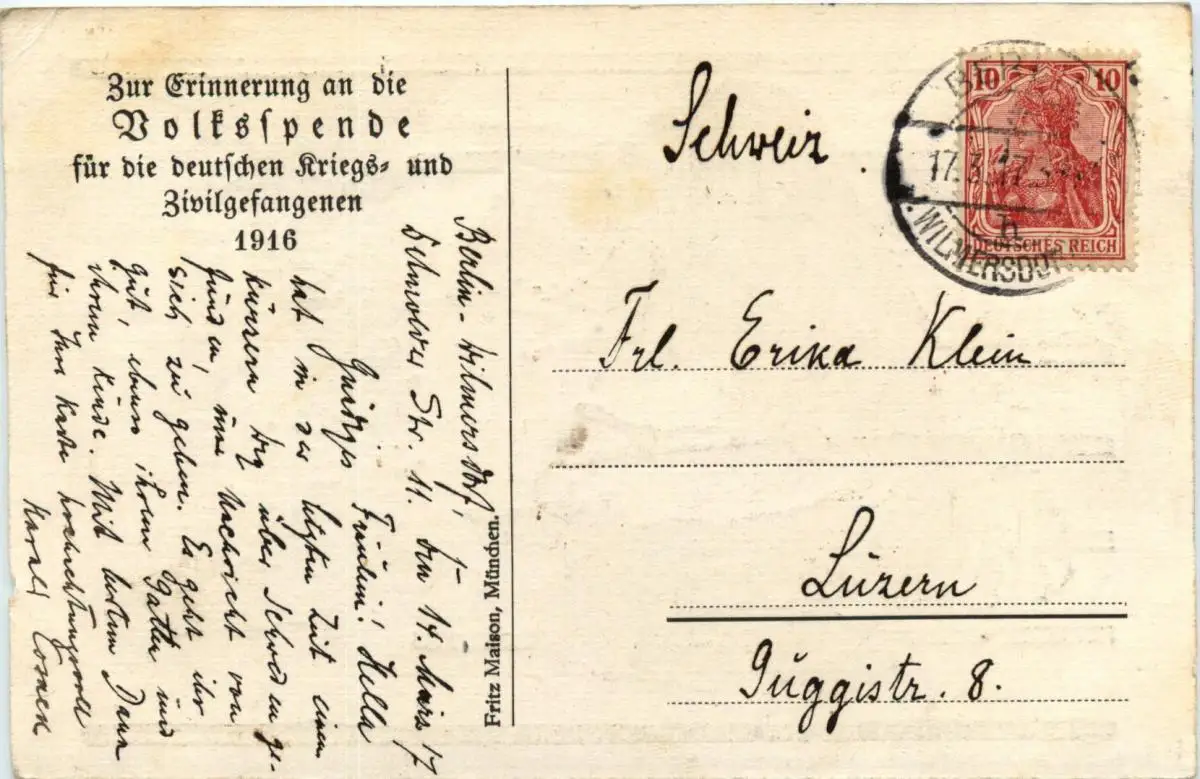 Zur Erinnerung an die
Volksspende
für die deutschen Kriegs- und
Zivilgefangenen
1916
Berlin-Wilmersdorf,
Detmolder Str. 11. den März 17
Fräulein! Hella
hat in der letzten Zeit einen
kürzeren Weg über Schweden ge-
funden, um Nachricht von
sich zu geben. Es geht ihr
gut, ebenso ihrem Gatten und
ihrem Kinde. Mit bestem Dank
für Ihre Karte hochachtungsvoll
Harald
Fritz Maison, München.
Schweiz.
10 10
DEUTSCHES REICH
17.3.17
h
WILMERSDORF
Frl. Erika Klein
Luzern
Guggistr. 8.